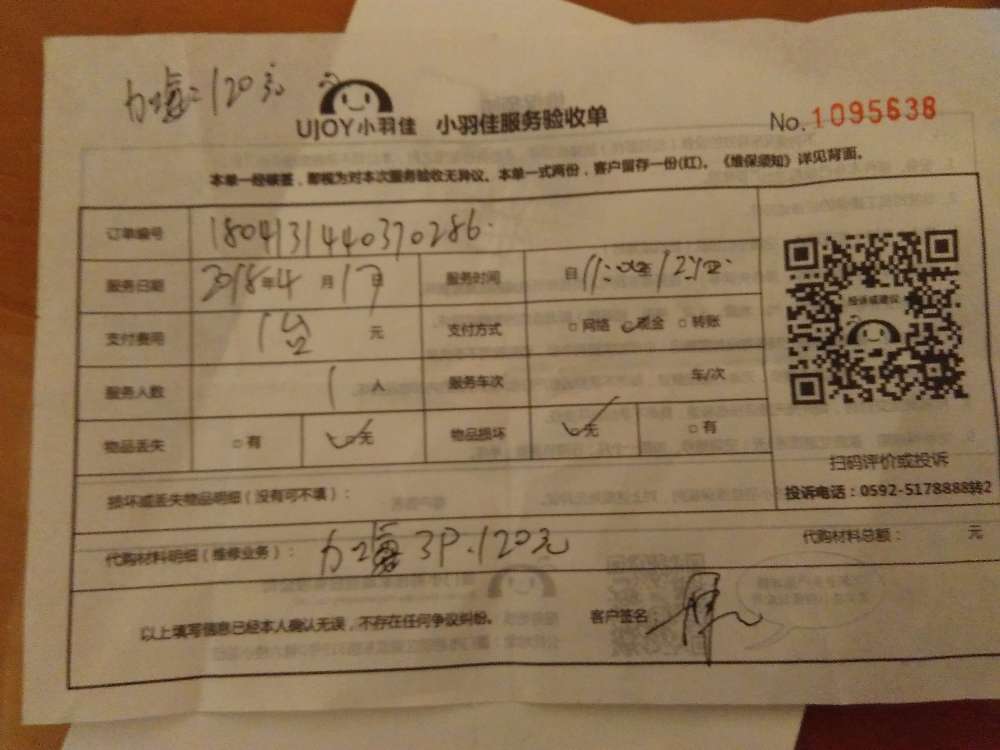 120元
UJOY小羽佳 小羽佳服务验收单
No. 1095638
本单一经确签，即视为对本次服务验收无异议。本单一式两份，客户留存一份(红)。《维保须知》详见背面。
订单编号 180413144037 0286
服务日期 2018年4月17日 服务时间 自11:00至12:
支付费用 1台 元 支付方式 □网络 □现金 □转账
服务人数 1人 服务车次 车/次
物品丢失 □有 □无 物品损坏 □无 □有
投诉或建议
扫码评价或投诉
投诉电话：0592-5178888转2
损坏或丢失物品明细（没有可不填）：
代购材料明细（维修业务）： 3P.120元 代购材料总额： 元
以上填写信息已经本人确认无误，不存在任何争议纠纷。 客户签名：